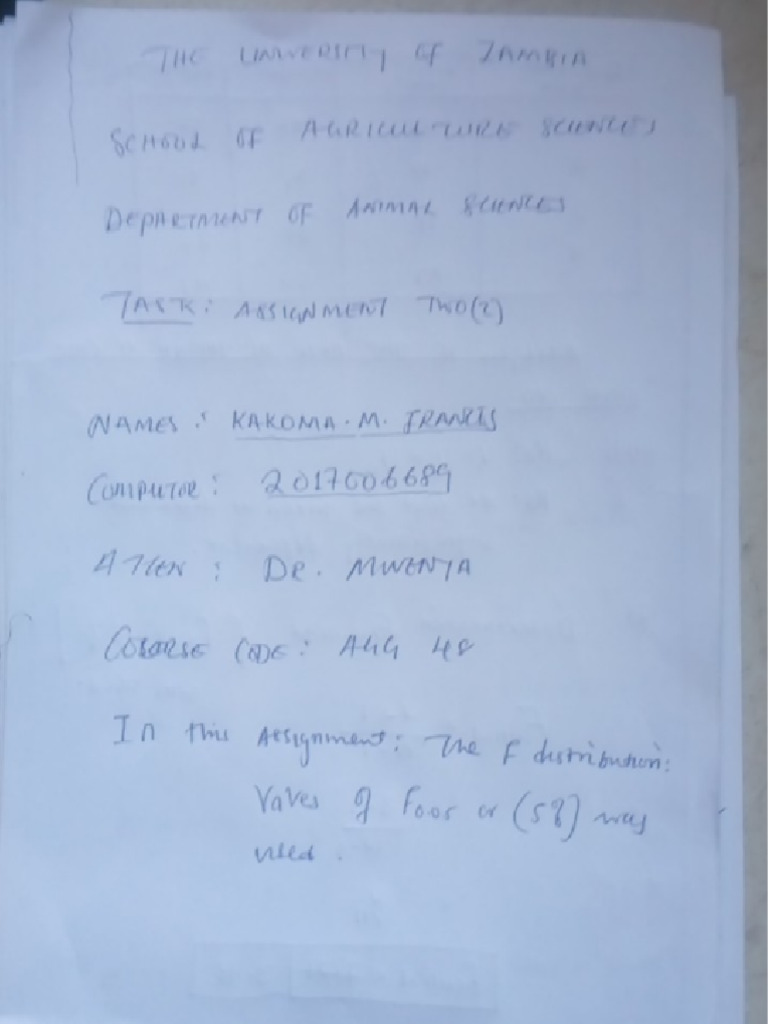 THE UNIVERSITY OF ZAMBIA
SCHOOL OF AGRICULTURE SCIENCES
DEPARTMENT OF ANIMAL SCIENCES
TASK: ASSIGNMENT TWO(2)
NAMES: KAKOMA. M. FRANCIS
COMPUTOR: 2017006689
DR. MWENYA
COURSE CODE:
In this Assignment: The F distribution:
Values of F0.05 or (5%) was
used.